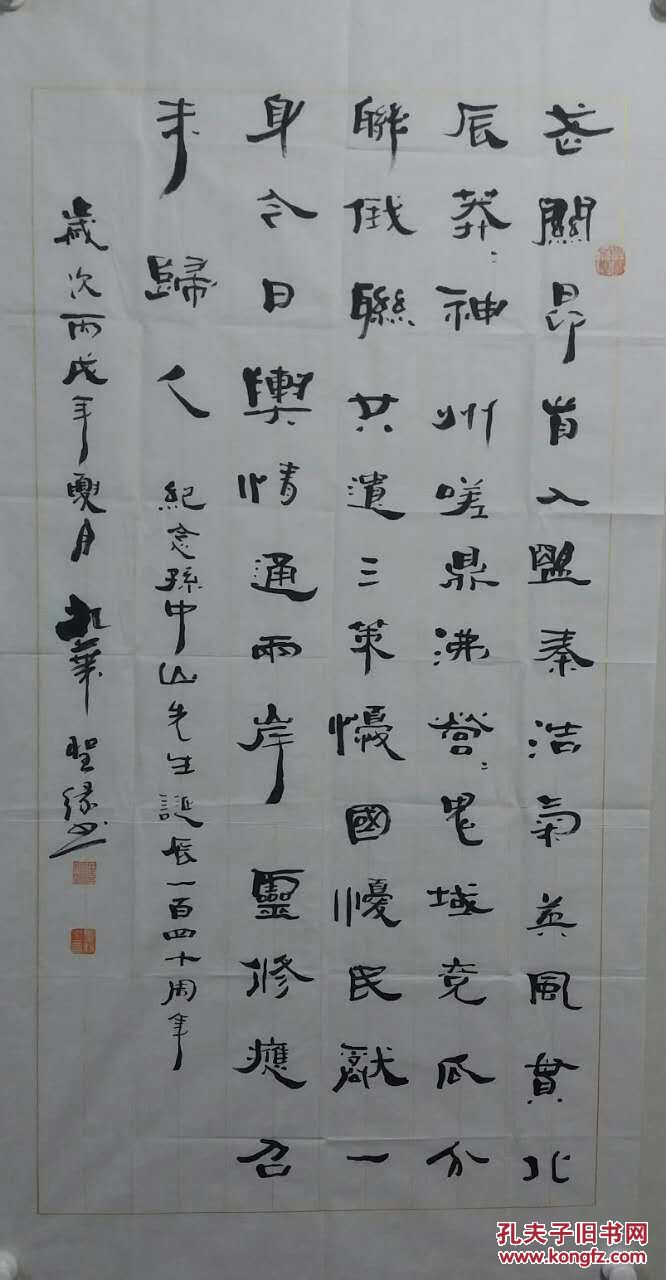 關昂首入盟秦浩氣英風貫北
辰莽〻神州嗟鼎沸營〻鬼域竞瓜分
聯俄聯共遺三策憂國憂民獻一
身今日輿情通兩岸靈修應召
未歸人
紀念孫中山先生誕辰一百四十周年
歲次丙戌年夏月 華聖緣书
孔夫子旧书网
www.kongfz.com